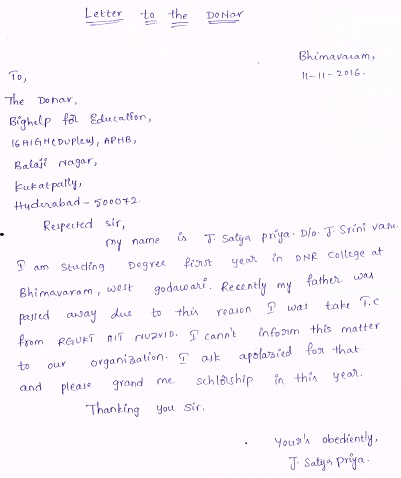 Letter to the Donar
Bhimavaram,
11-11-2016.
To,
The Donar,
Bighelp for Education,
16HIGH(Duplex), APHB,
Balaji Nagar,
Kukatpally,
Hyderabad - 500072.
Respected sir,
my name is J. Satya priya. D/o. J. Srini vasu.
I am studing Degree first year in DNR College at
Bhimavaram, west godawari. Recently my father was
passed away due to this reason I was take T.C
from RGUKT IIIT NUZVID. I cann't inform this matter
to our organization. I ask apolazied for that
and please grand me schlorship in this year.
Thanking you sir.
Your's obediently,
J. Satya priya.